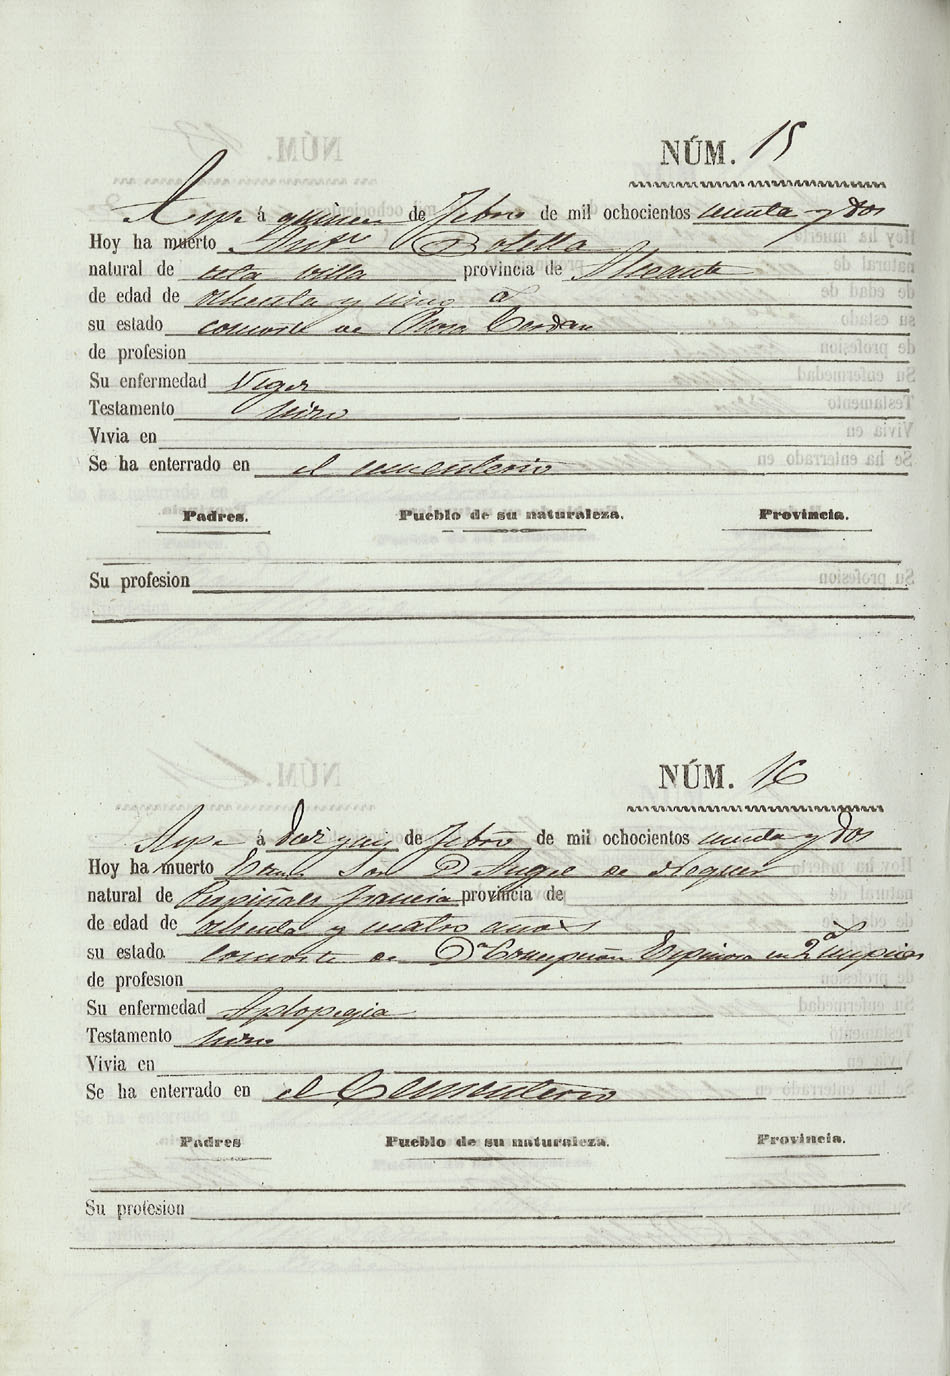 NÚM. 15
Aspe á quince de Febro de mil ochocientos ochenta y dos
Hoy ha muerto Botella
natural de esta villa provincia de Alicante
de edad de ochenta y cinco a
su estado consorte de Rosa Cerdan
de profesion
Su enfermedad Vegez
Testamento hizo
Vivia en
Se ha enterrado en el cementerio
Padres. Pueblo de su naturaleza. Provincia.
Su profesion
NÚM. 16
Aspe á diez y seis de Febro de mil ochocientos ochenta y dos
Hoy ha muerto Exmo Sor D Angel de Noguer
natural de Perpiñan francia provincia de
de edad de ochenta y cuatro años
su estado consorte de Da Concepcion Espinosa en 2as nupcias
de profesion
Su enfermedad Aplopegia
Testamento hizo
Vivia en
Se ha enterrado en el Cementerio
Padres Pueblo de su naturaleza. Provincia.
Su profesion